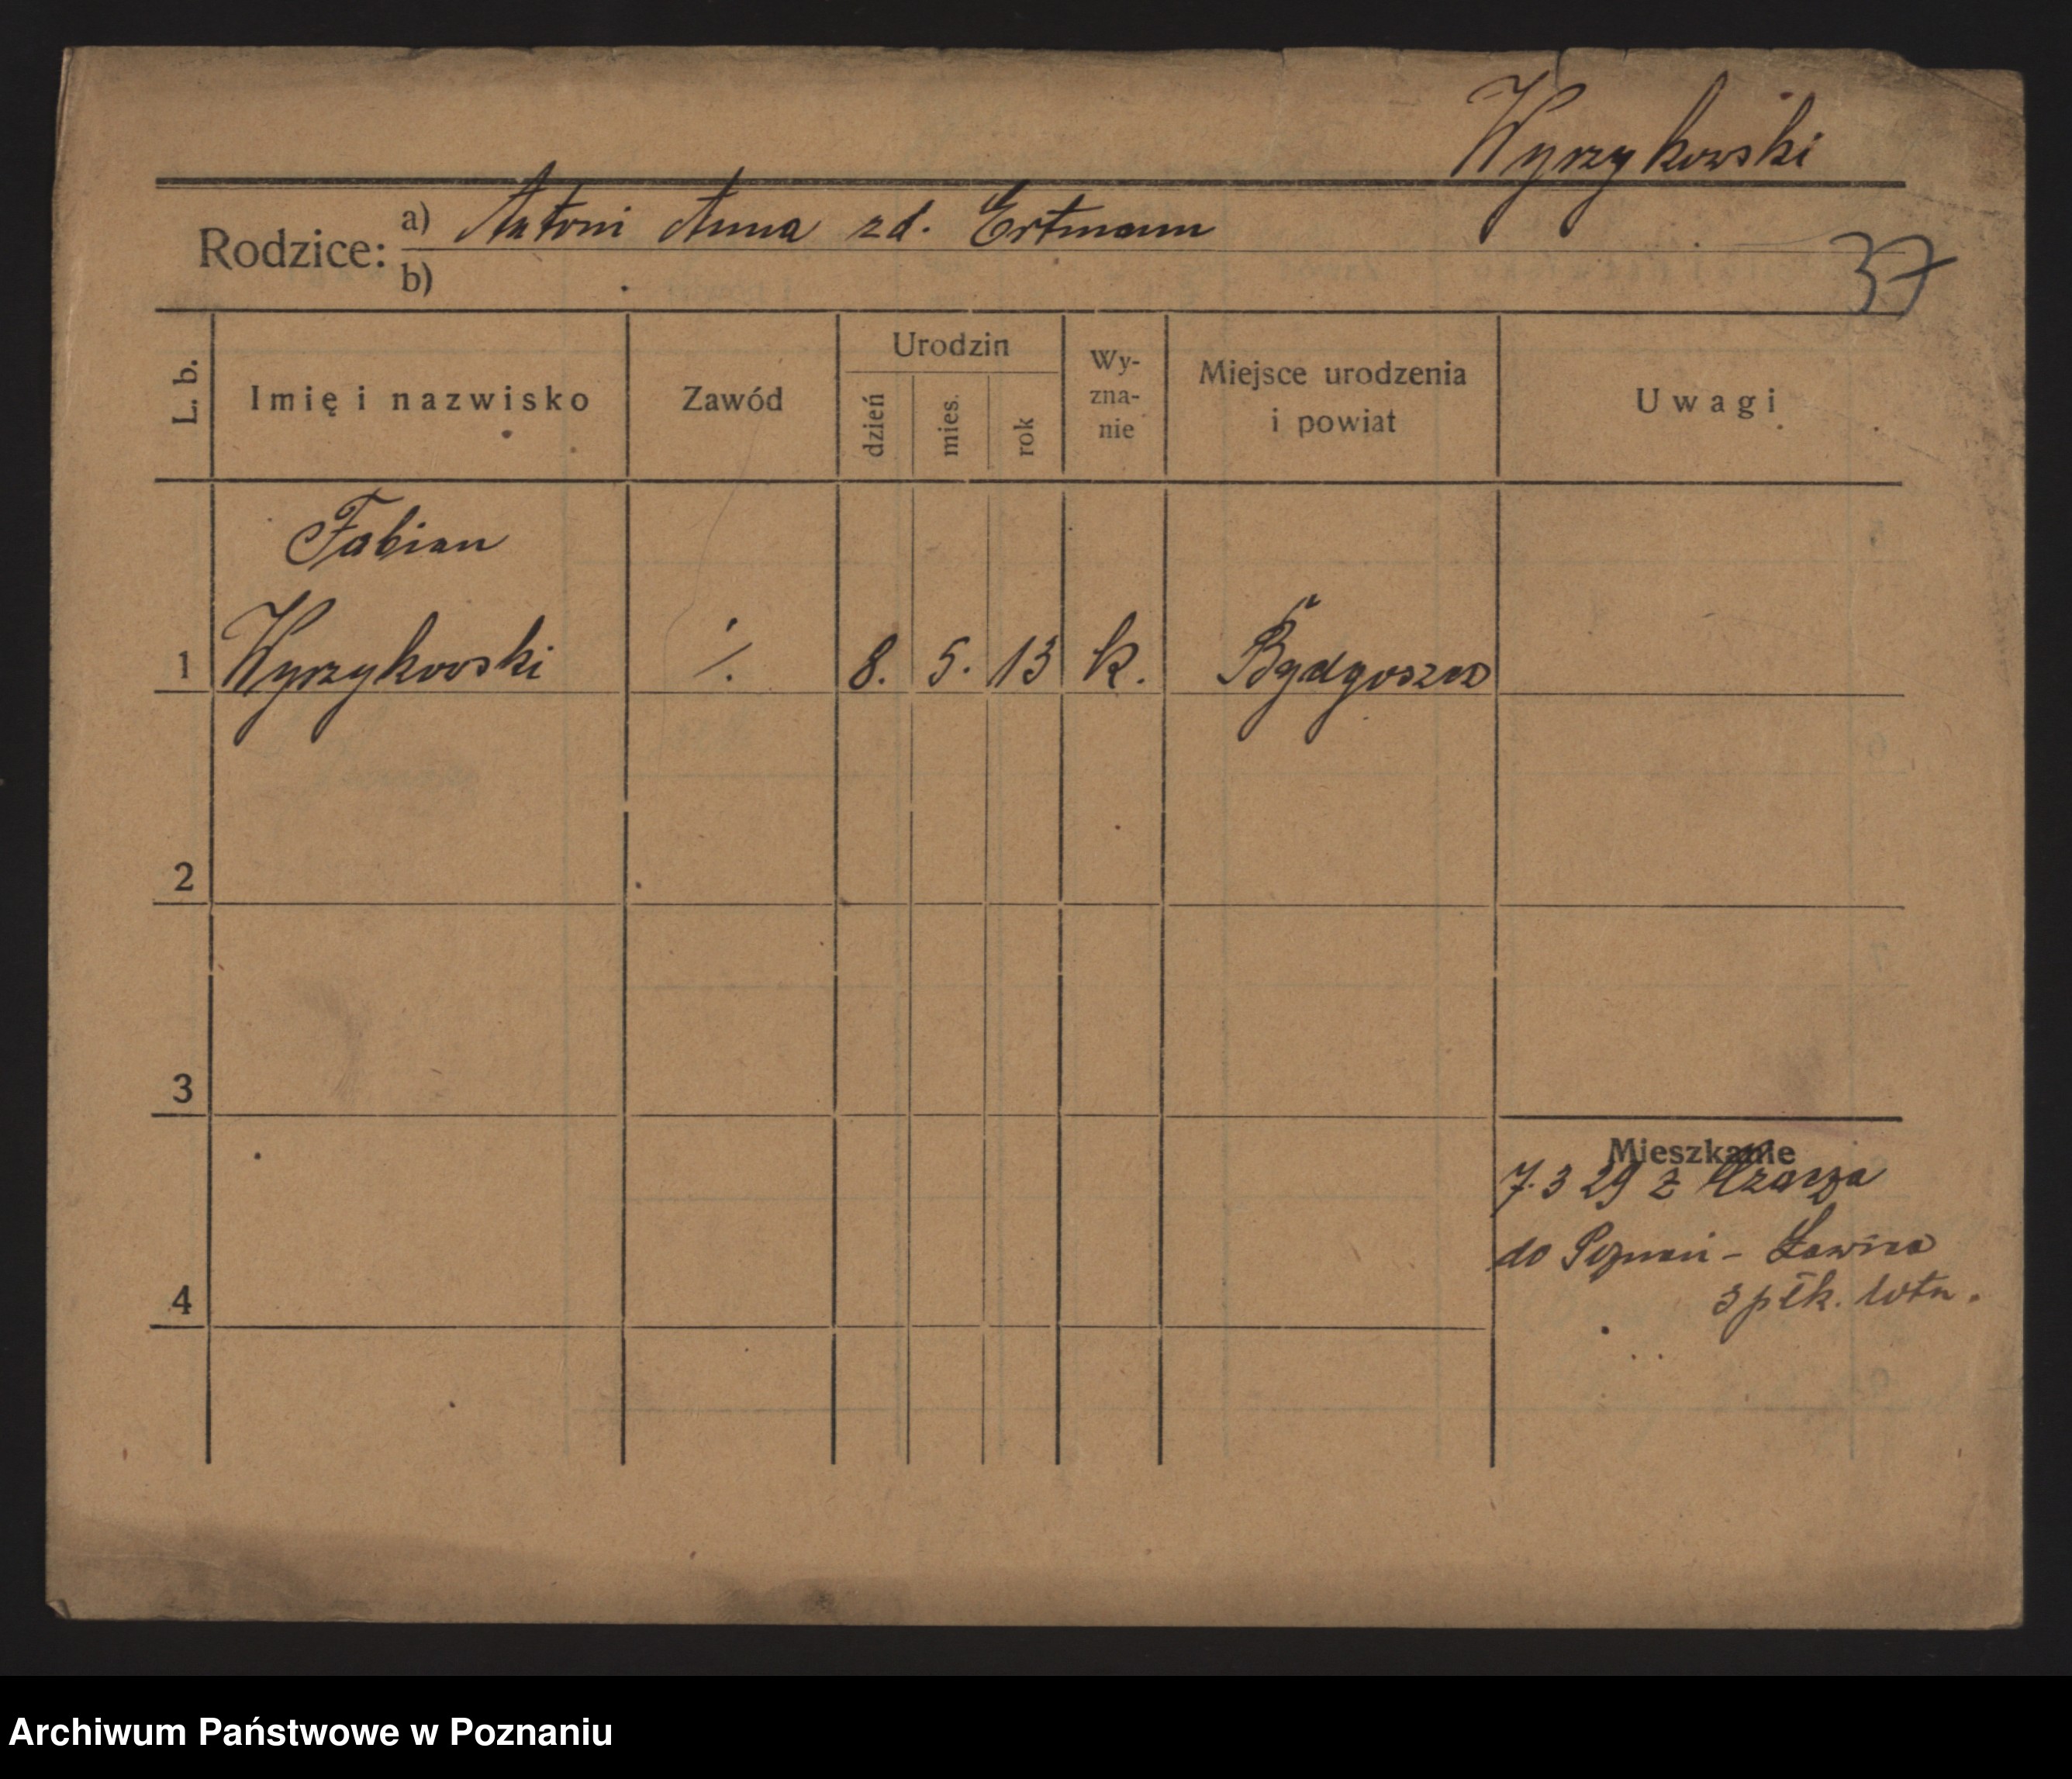 Wyrzykowski
Rodzice: a) Antoni Anna zd. Ertmann
b)
37
L. b. Imię i nazwisko Zawód Urodzin dzień mies. rok Wy-zna-nie Miejsce urodzenia i powiat Uwagi
Fabian
1 Wyrzykowski ./. 8. 5. 13 k. Bydgoszcz
2
3
Mieszkanie
7.3 29 z
do Poznań - Ławica
3 płk. lotn.
4
Archiwum Państwowe w Poznaniu